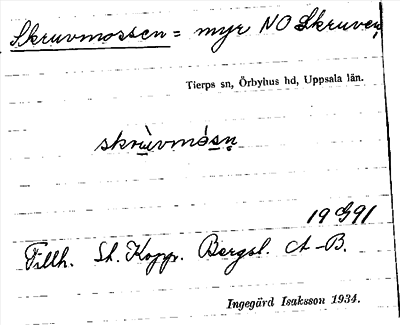 Skruvmossen = myr NO Skruven,
Tierps sn, Örbyhus hd, Uppsala län.
skrùvmósn̥
19 G 91
Tillh. St. Kopp. Bergsl. A-B.
Ingegärd Isaksson 1934.